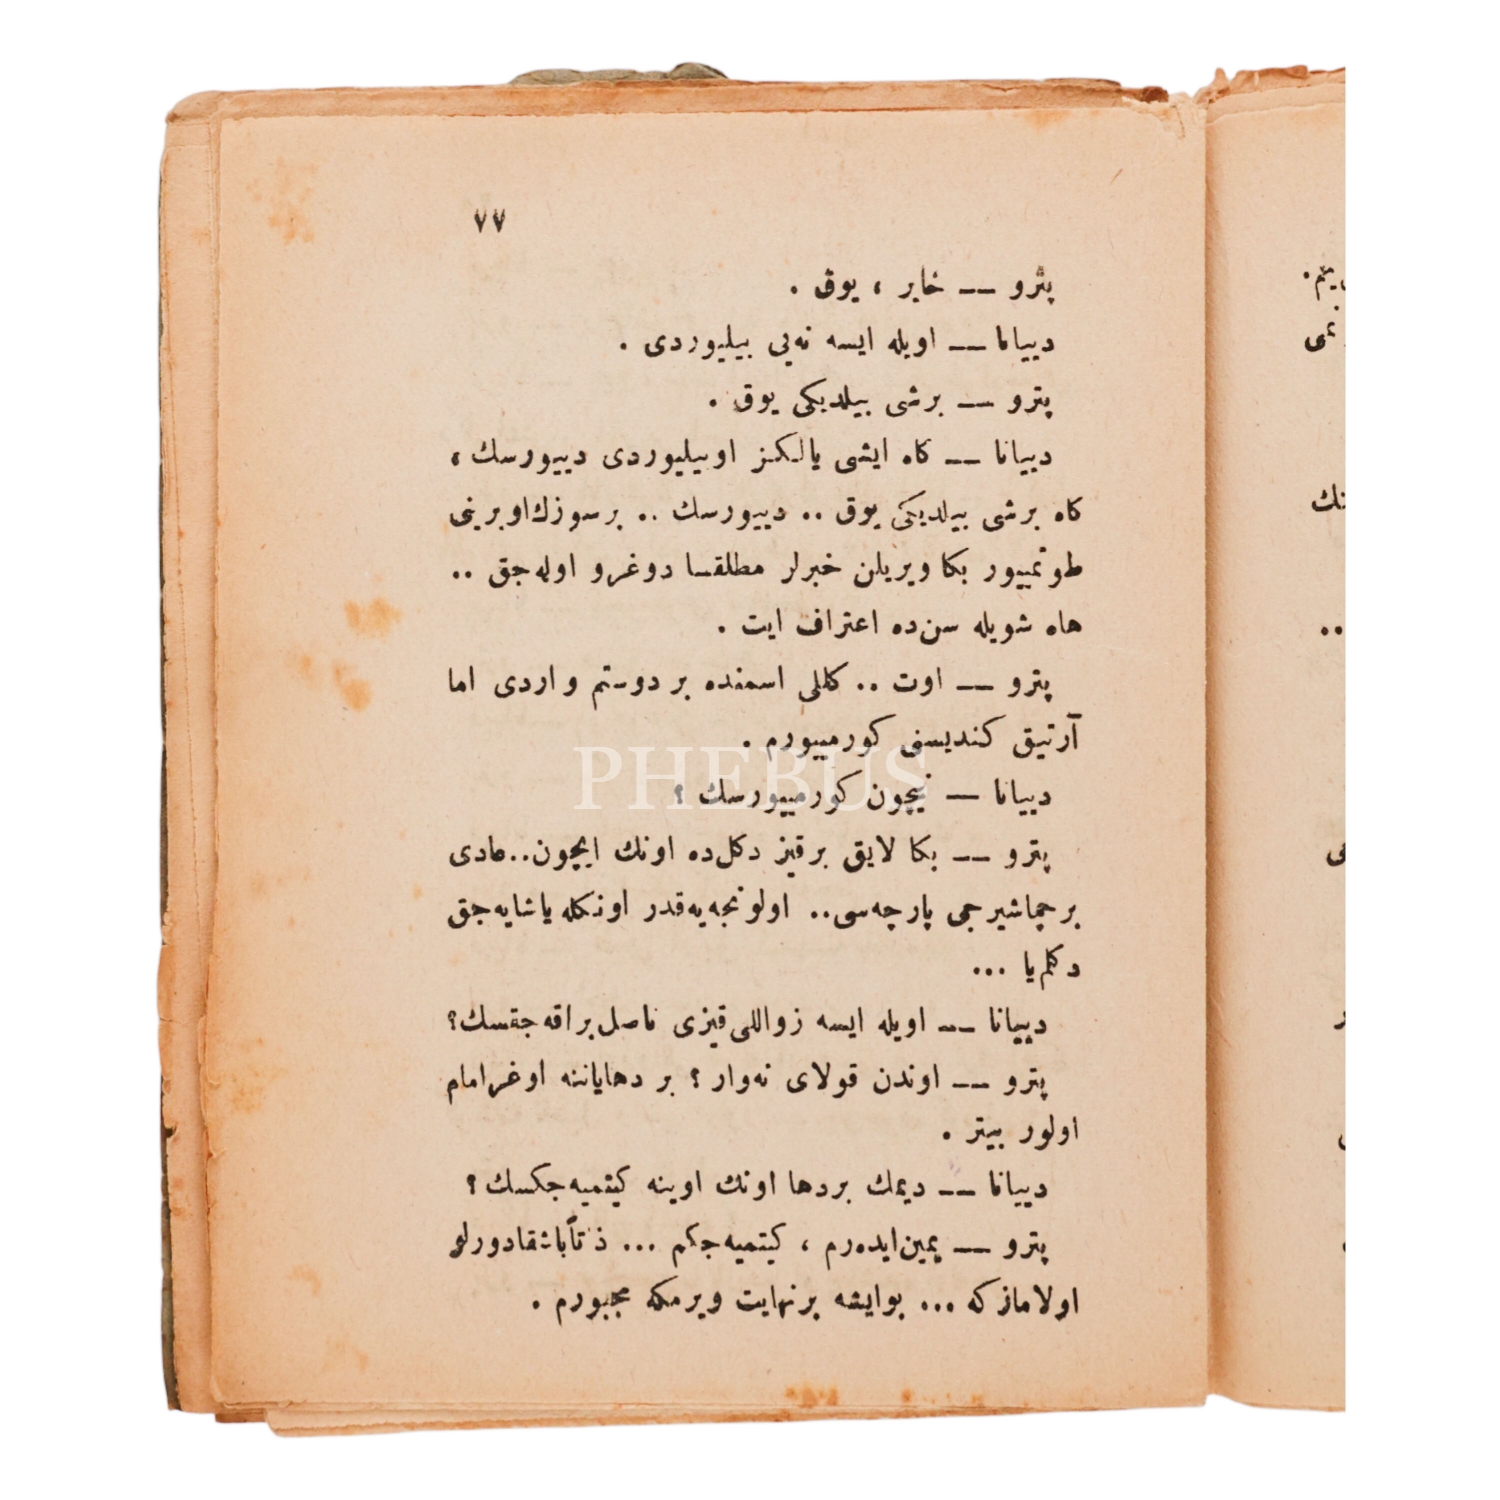 ٧٧
پترو — خایر ، یوق .
دییانا — اویله ایسه نه‌یی بیلیوردی .
پترو — برشی بیلدیكی یوق .
دییانا — كاه ایشی یالكز او بیلیوردی دییورسك ،
كاه برشی بیلدیكی یوق .. دییورسك .. برسوزك اوبرینی
طوتمییور بكا ویریلن خبرلر مطلقا دوغرو اوله‌جق ..
هاه شویله سن‌ده اعتراف ایت .
پترو — اوت .. كللی اسمنده بر دوستم واردی اما
آرتیق كندیسنی كورمییورم .
PHEBUS
دییانا — نیچون كورمییورسك ؟
پترو — بكا لایق برقیز دكل‌ده اونك ایچون.. عادی
برچماشیرجی پارچه‌سی.. اولونجه‌یه‌قدر اونكله یاشایه‌جق
دكلم‌یا ...
دییانا — اویله ایسه زواللی‌قیزی ناصل براقه‌جقسك؟
پترو — اوندن قولای نه‌وار ؟ بر دهایاننه اوغرامام
اولور بیتر .
دییانا — دیمك بردها اونك اوینه كیتمیه‌جكسك ؟
پترو — یمین‌ایده‌رم ، كیتمیه‌جكم ... ذاتاًباشقادورلو
اولامازكه ... بوایشه برنهایت ویرمكه مجبورم .